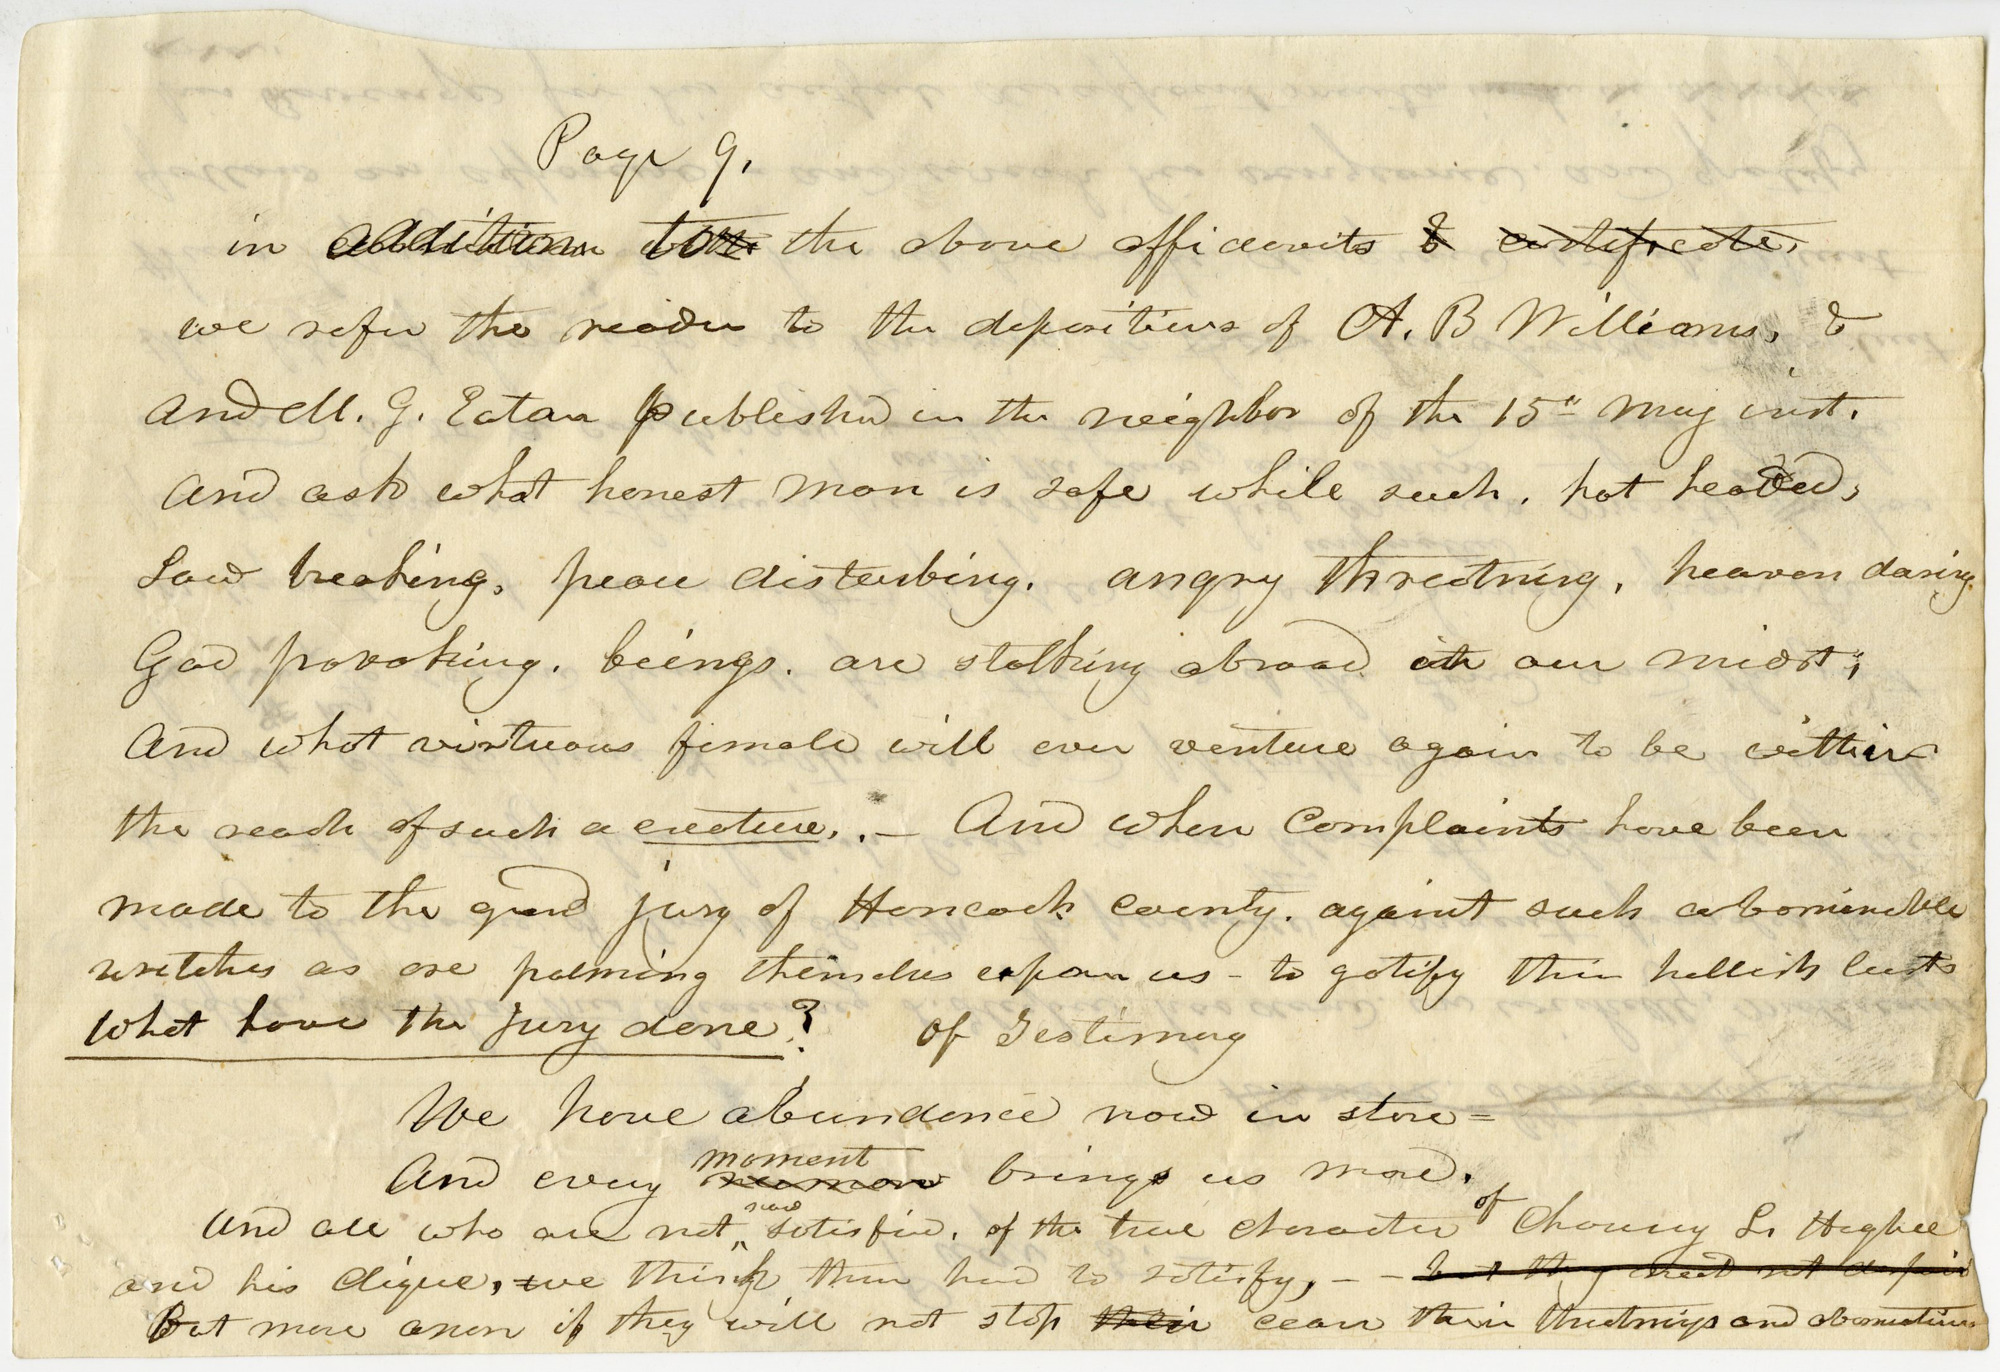 Page 9.
in addition to the above affidavits & certificate,
we refer the reader to the depositions of A. B Williams, &
And M. G. Eaton published in the neighbor of the 15th may inst.
And ask what honest man is safe while such, hot headed,
Law breaking, peace disturbing, angry threatning, heaven daring
God provoking, beings, are stalking abroad in our midst;
And what virtuous female will ever venture again to be within
the reach of such a creature,. — And when complaints have been
made to the grand jury of Hancock county, against such abominable
wretches as are palming themselves upon us - to gratify their hellish lusts
what have the jury done? of Testimony
We have abundance now in store =
moment
And every brings us more.
now of
And all who are not satisfied, of the true character Chauncy L. Higbee
and his clique, we think them hard to satisfy, - - but they need not despair
But more anon if they will not stop their cease their threatnings and abominations